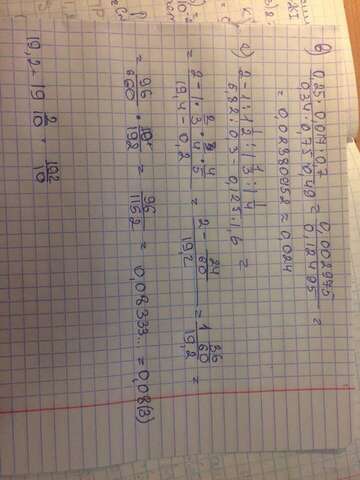 в) 0,25·0,017·0,7 / 0,34·0,75·0,49 = 0,002975 / 0,12495 =
= 0,02380952 ≈ 0,024
2-1:1 1/2:1 1/3:1 1/4 / 5,82:0,3-0,125·1,6 =
= 2-1·2/3·3/4·4/5 / 19,4-0,2 = 2-24/60 / 19,2 = 1 36/60 / 19,2 =
= 96/ · 10/192 = 96/1152 = 0,08333... = 0,08(3)
19,2 = 19 2/10 = 192/10